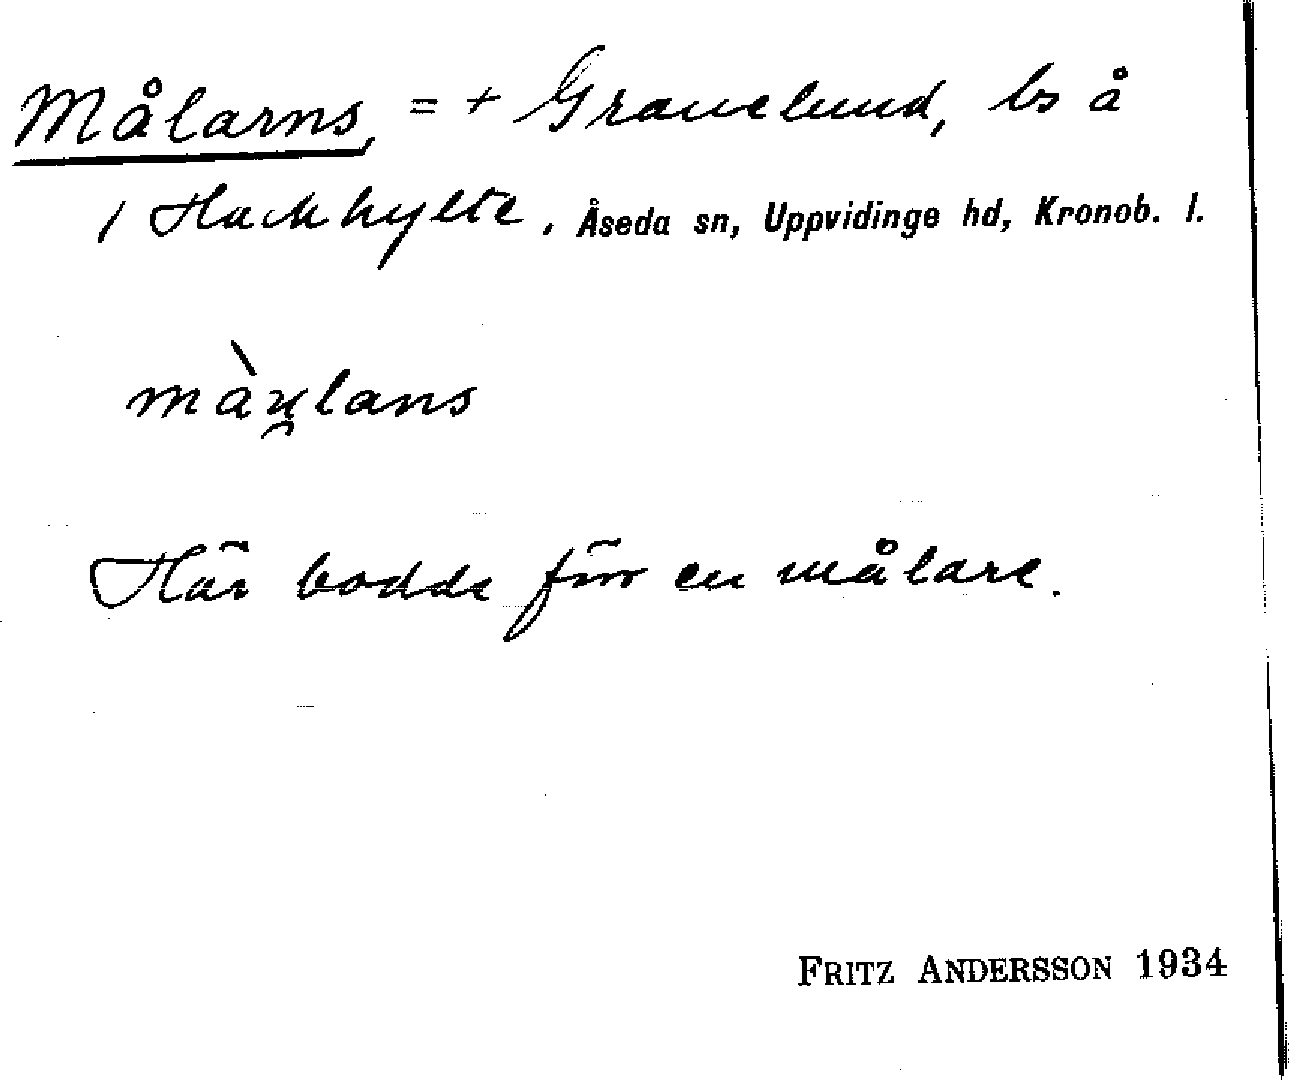 Målarns, = + Granelund, ls å
1 Hackhylte, Åseda sn, Uppvidinge hd, Kronob. l.
Här bodde förr en målare.
FRITZ ANDERSSON 1934